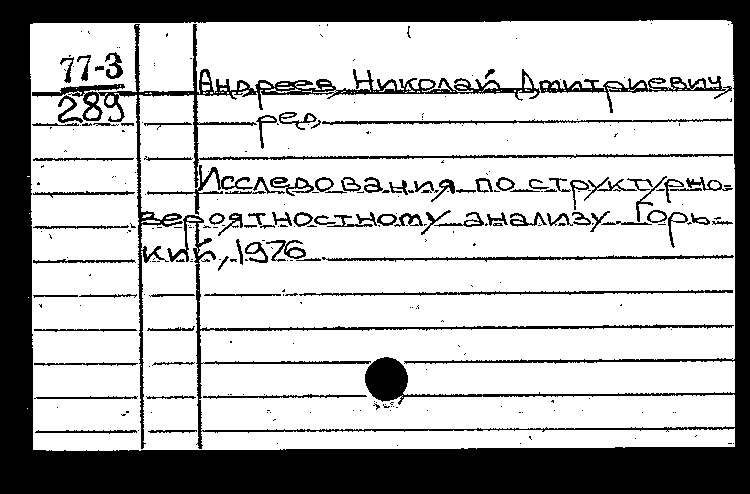 77-3
289
Андреев, Николай Дмитриевич,
ред.
Исследования по структурно-
вероятностному анализу. Горь-
кий, 1976